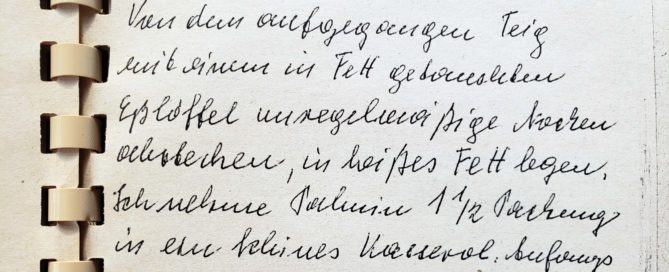 Von dem aufgegangen Teig
mit einem in Fett getauchten
Eßlöffel unregelmäßige Nocken
abstechen, in heißes Fett legen.
Ich nehme Palmin 1 1/2 Packung
in ein kleines Kasserol. Anfangs